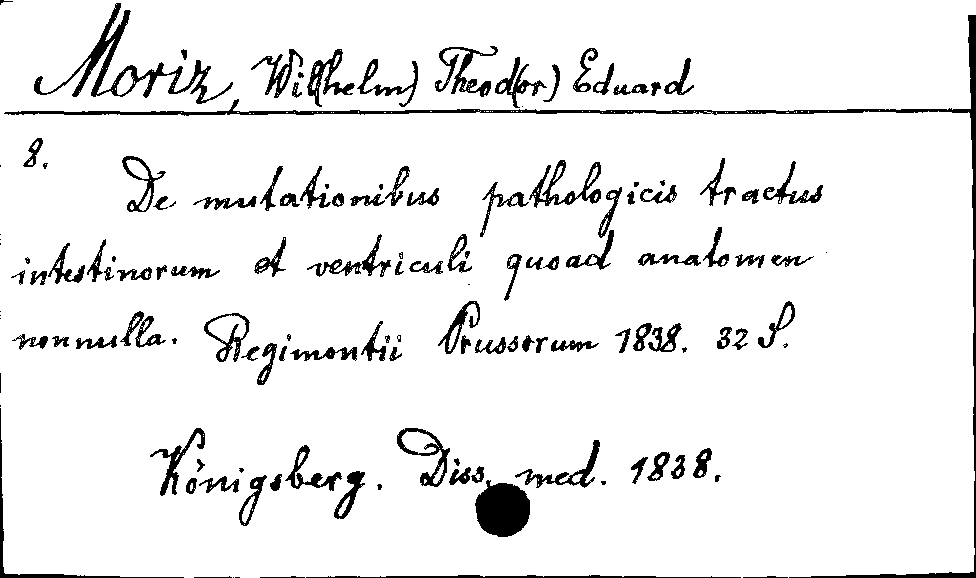 Moriz, Wil(helm) Theod(or) Eduard
8.
De mutationibus pathologicis tractus
intestinorum et ventriculi quoad anatomen
nonnulla. Regimontii Prussorum 1838. 32 S.
Königsberg. Diss. med. 1838.